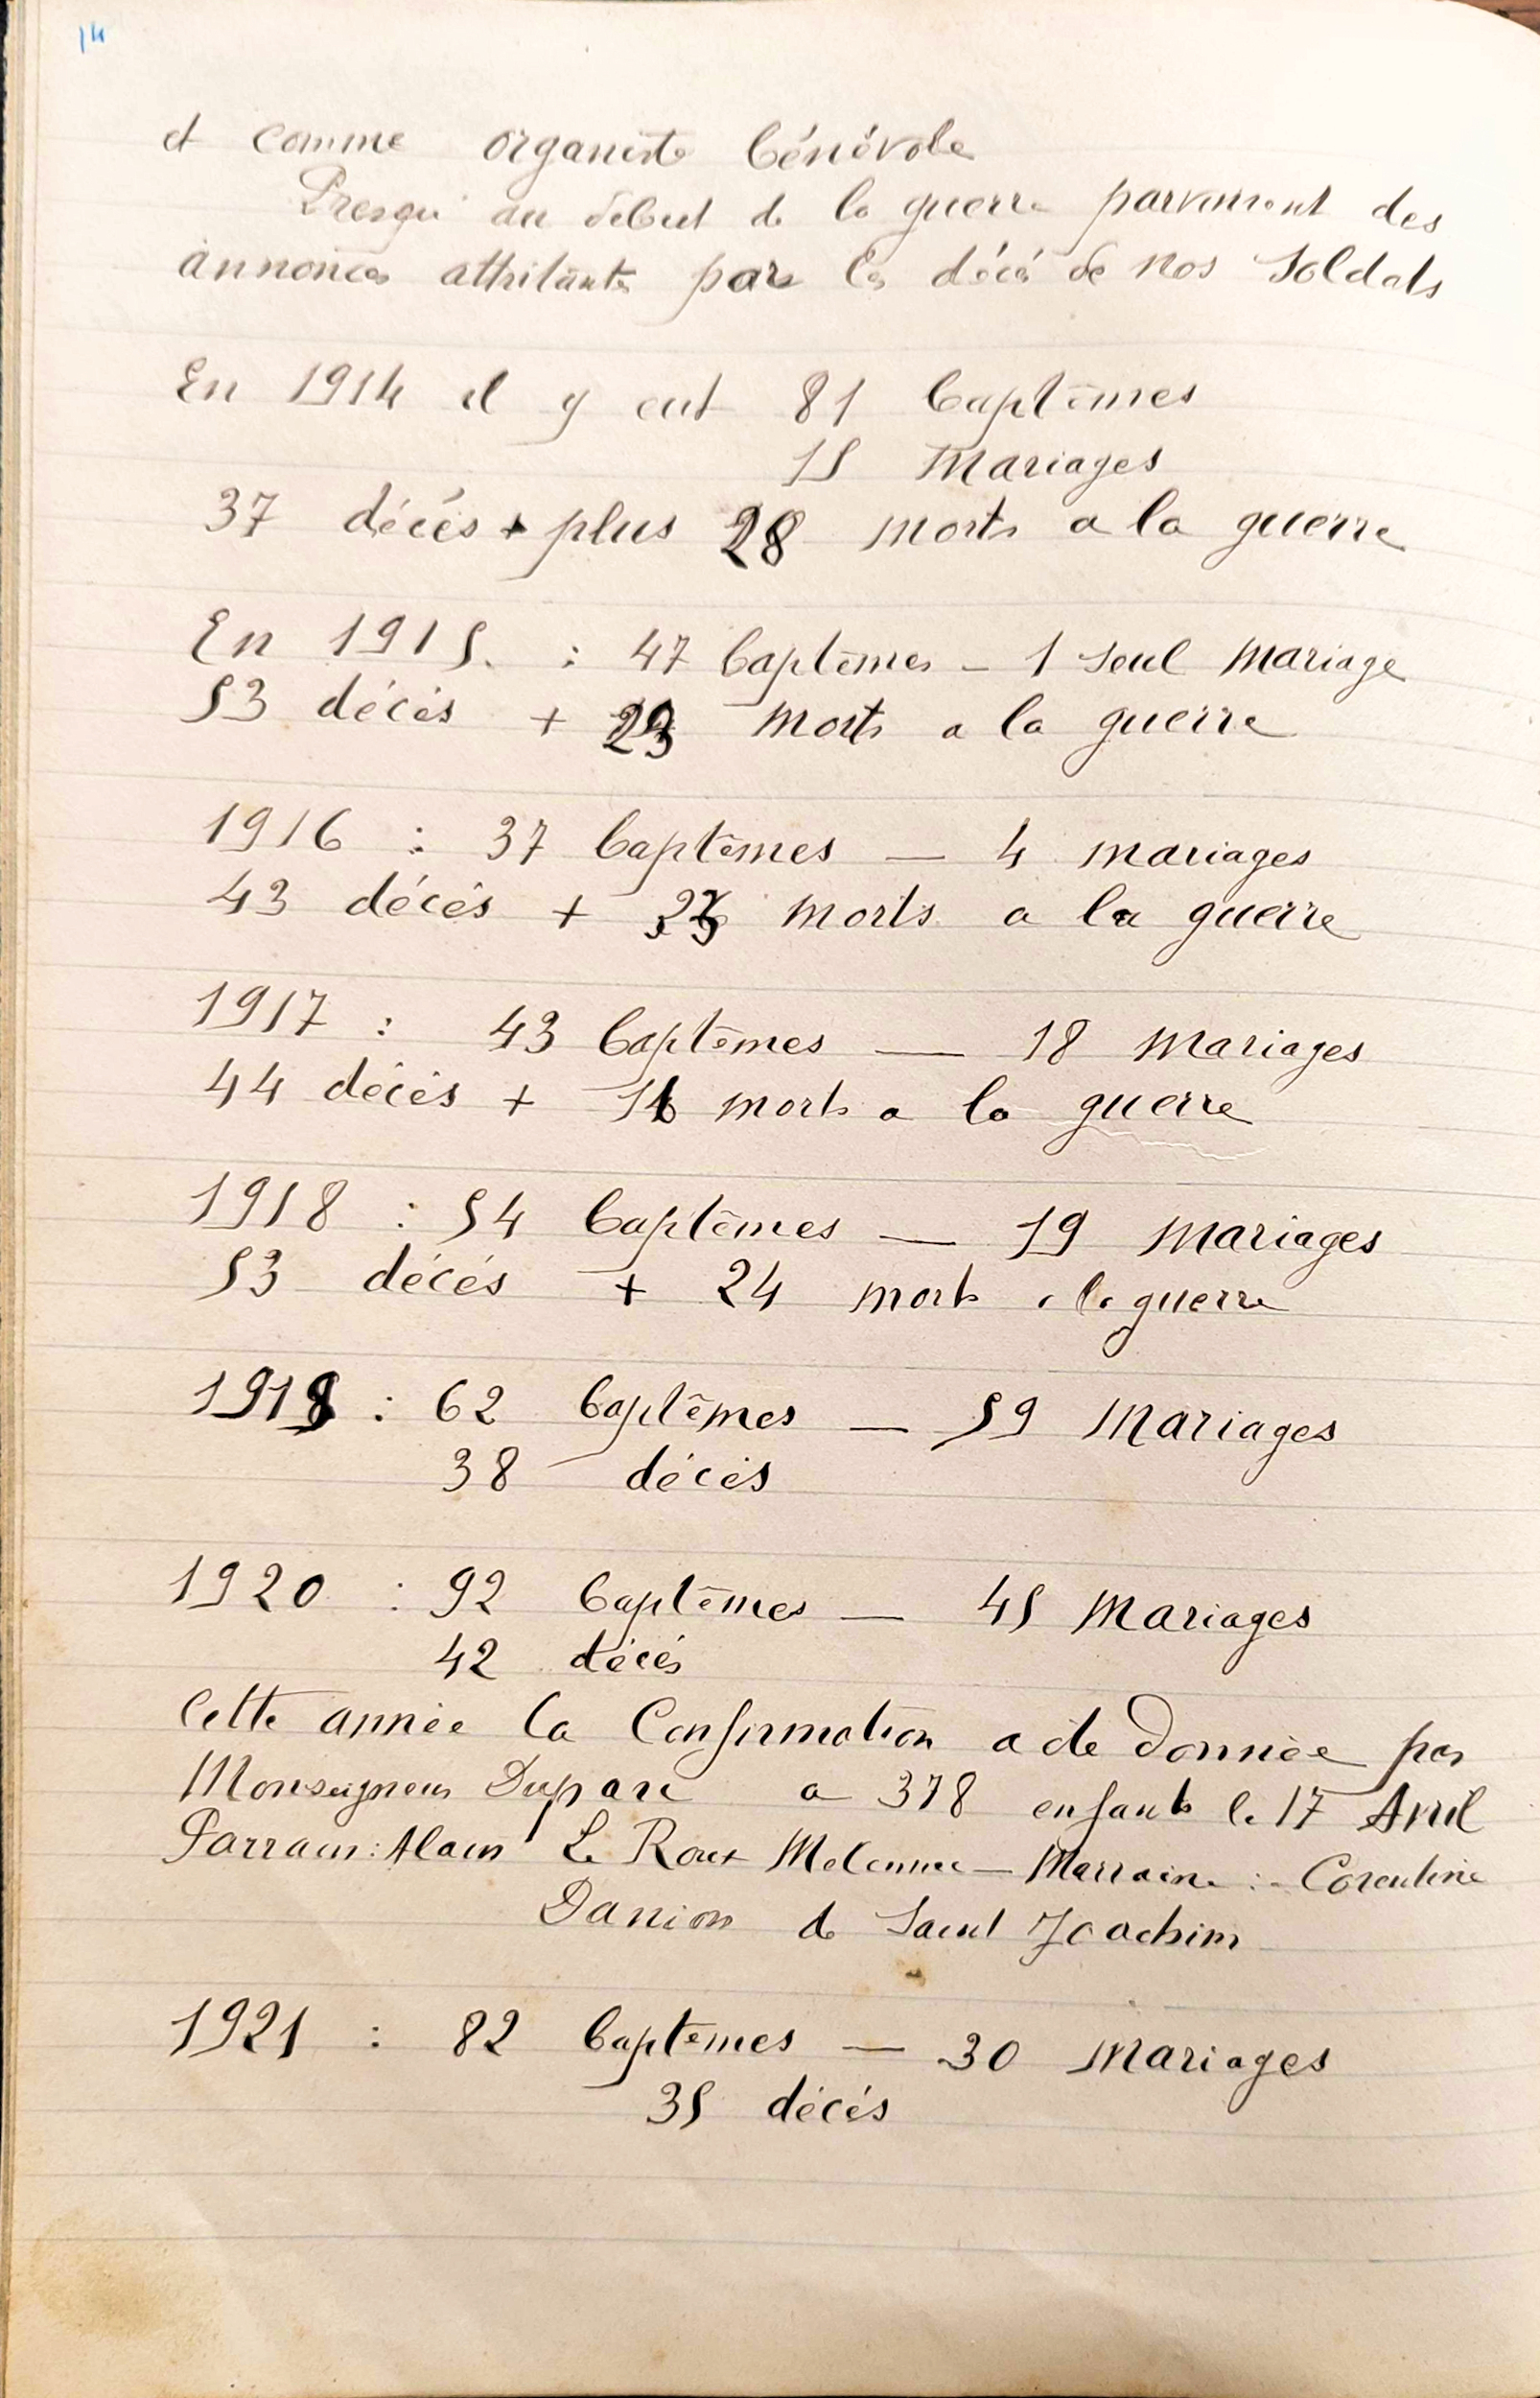 14
et comme organiste bénévole
Presqu' au début de la guerre parvinrent des
annonces attristantes par les décès de nos soldats
En 1914 il y eut 81 baptêmes
15 Mariages
37 décès + plus 28 morts a la guerre
En 1915. : 47 baptêmes - 1 seul mariage
53 décès + morts a la guerre
1916 : 37 baptêmes — 4 mariages
43 décès + morts a la guerre
1917 : 43 baptêmes — 18 Mariages
44 décès + morts a la guerre
1918 : 54 baptêmes — 19 Mariages
53 décès + 24 morts a la guerre
1919 : 62 baptêmes — 59 Mariages
38 décès
1920 : 92 baptêmes — 45 Mariages
42 décès
Cette année la Confirmation a été donnée par
Monseigneur Duparc a 378 enfants le 17 Avril
Parrain : Alain Le Roux Melennec — Marraine :- Corentine
Danion de Saint Joachim
1921 : 82 baptemes — 30 Mariages
35 décès